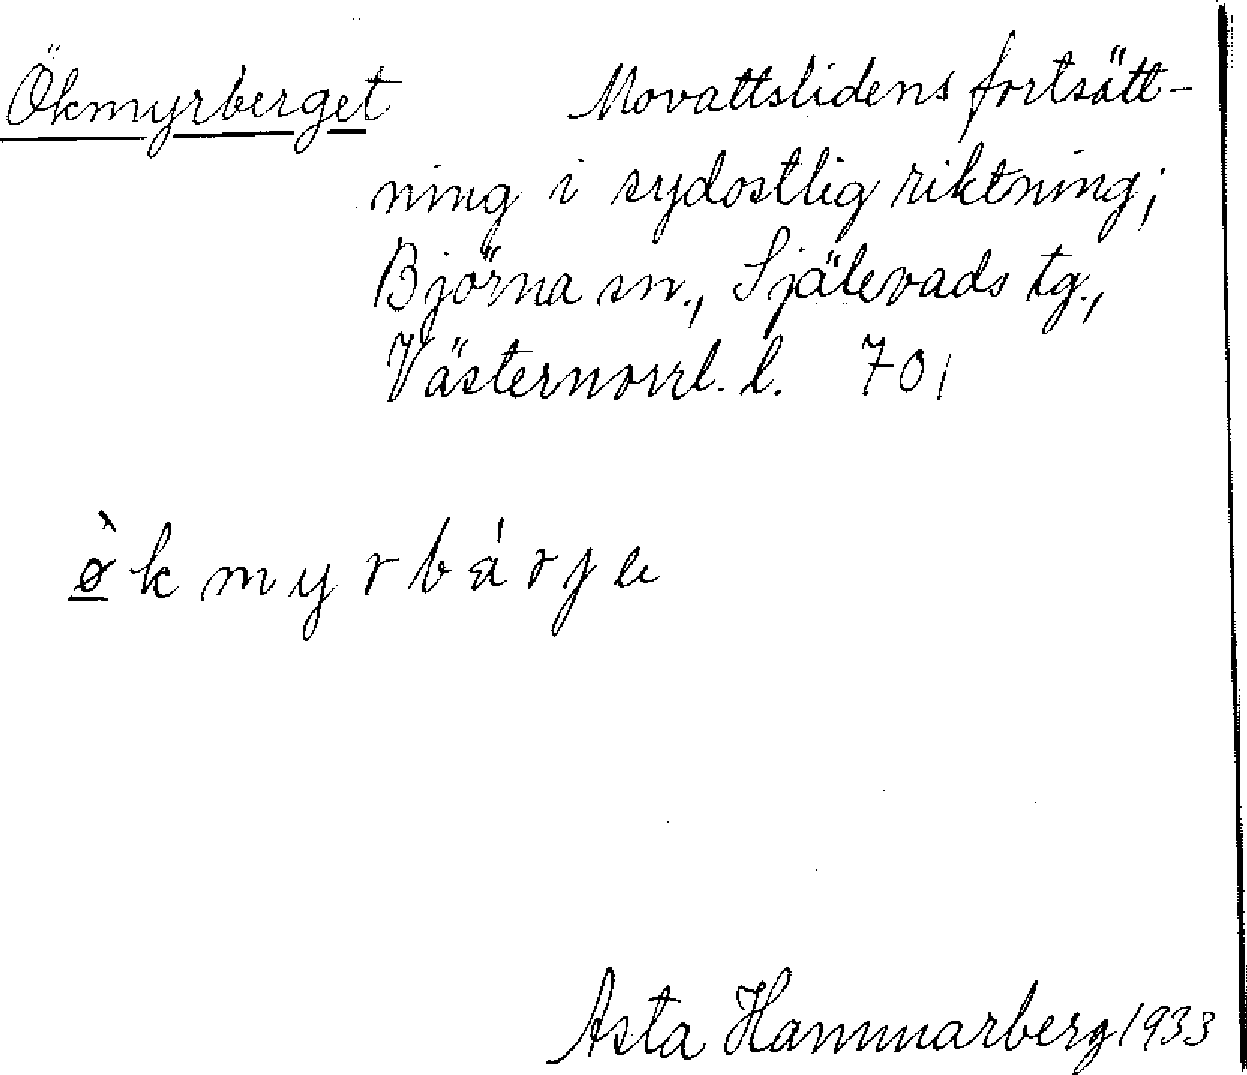 Ökmyrberget Movattslidens fortsätt-
ning i sydostlig riktning;
Björna sn., Själevads tg.,
Västernorrl. l. 701
ø̀kmyrbárje
Asta Hammarberg 1933